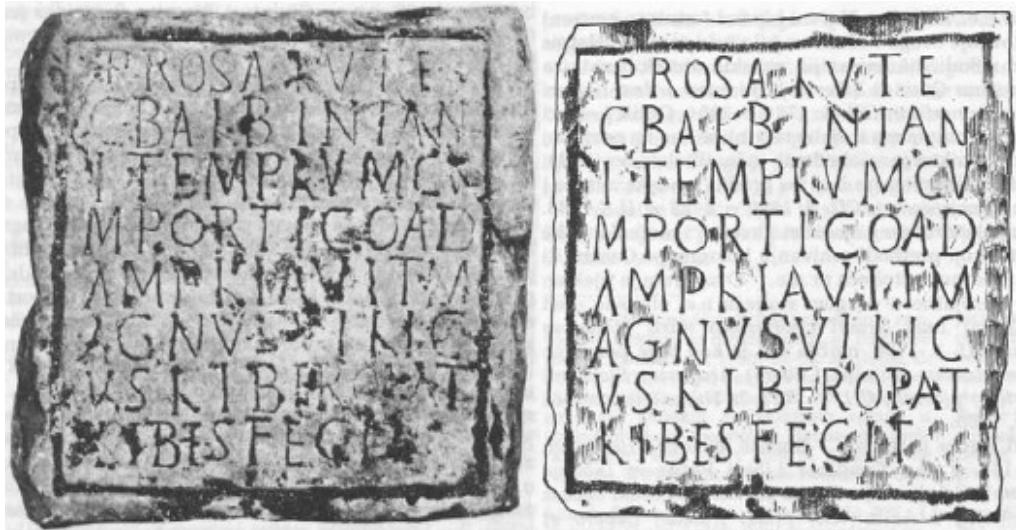 PROSALVTE
CBALBINIAN
ITEMPLVMCV
MPORTICOAD
AMPLIAVITM
AGNVSVILIC
VSLIBEROPAT
LIBESFECIT
PROSALVTE
CBALBINIAN
ITEMPLVMCV
MPORTICOAD
AMPLIAVITM
AGNVSVILIC
VSLIBEROPAT
LIBESFECIT